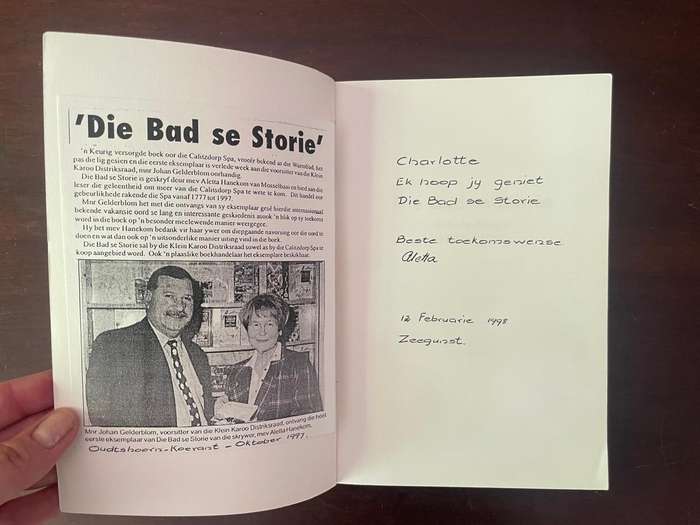 'Die Bad se Storie'
'n Keurig versorgde boek oor die Calitzdorp Spa, voorér bekend as die Warmbad, het
pas die lig gesien en die eerste eksemplaar is verlede week aan die voorsitter van die Klein
Karoo Distriksraad, mnr Johan Gelderblom oorhandig.
Die Bad se Storie is geskryf deur mev Aletta Hanekom van Mosselbaai en bied aan die
leser die geleentheid om meer van die Calitzdorp Spa te wete te kom. Dit handel oor
gebeurlikhede rakende die Spa vanaf 1777 tot 1997.
Mnr Gelderblom het met die ontvangs van sy eksemplaar gesê hierdie internasionaal
bekende vakansie oord se lang en interessante geskiedenis asook 'n blik op sy toekoms
word in die boek op 'n besonder meelewende manier weergegee.
Hy het mev Hanekom bedank vir haar ywer om diepgaande navorsing oor die oord te
doen en wat dan ook op 'n uitsonderlike manier uiting vind in die boek.
Die Bad se Storie sal by die Klein Karoo Distriksraad sowel as by die Calitzdorp Spa te
koop aangebied word. Ook 'n plaaslike boekhandelaar het eksemplare beskikbaar.
Mnr Johan Gelderblom, voorsitter van die Klein Karoo Distriksraad, ontvang die heel
eerste eksemplaar van Die Bad se Storie van die skrywer, mev Aletta Hanekom.
Oudtshoorn-Koerant - Oktober 1997.
Charlotte
Ek hoop jy geniet
Die Bad se Storie
Beste toekomswense
Aletta
12 Februarie 1998
Zeegunst.